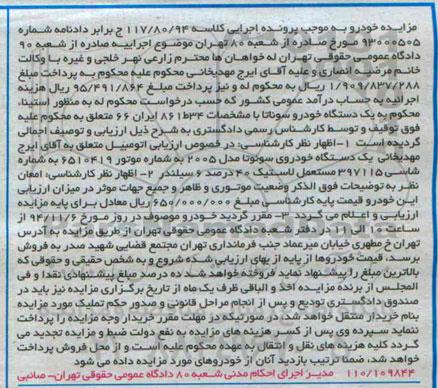 مزایده خودرو به موجب پرونده اجرایی کلاسه ۱۱۷/۸۰/۹۴ ج برابر دادنامه شماره
۹۳۰۰۰۵۰۵ مورخ صادره از شعبه ۸۰ تهران موضوع اجراییه صادره از شعبه ۹۰
دادگاه عمومی حقوقی تهران له خواهان ها محترم زارعی نهر خلجی و غیره با وکالت
خانم مرضیه انصاری و علیه آقای ایرج مهدیخانی محکوم علیه محکوم به پرداخت مبلغ
۱/۹۰۹/۸۳۷/۲۸۸ ریال به محکوم له و نیز پرداخت مبلغ ۹۵/۴۹۱/۸۶۴ ریال هزینه
اجرائیه به حساب درآمد عمومی کشور که حسب درخواست محکوم له به منظور استیفاء
محکوم به یک دستگاه خودرو سوناتا با مشخصات ۸۶۱ط۳۴ ایران ۶۶ متعلق به محکوم علیه
فوق توقیف و توسط کارشناس رسمی دادگستری به شرح ذیل ارزیابی و توصیف اجمالی
گردیده است ۱-اظهار نظر کارشناسی: در خصوص ارزیابی اتومبیل متعلق به آقای ایرج
مهدیخانی یک دستگاه خودروی سوئوتا مدل ۲۰۰۵ به شماره موتور ۶۵۱۰۴۱۹ به شماره
شاسی ۳۹۷۱۱۵ مستعمل لاستیک ۴۰ درصد ۶ سیلندر ۲- اظهار نظر کارشناسی: امعان
نظر به توضیحات فوق الذکر وضعیت موتوری و ظاهر و جمیع جهات موثر در میزان ارزیابی
این خودرو قیمت پایه کارشناسی مبلغ ۶۵۰/۰۰۰/۰۰۰ ریال معادل برای پایه مزایده
ارزیابی و اعلام می گردد ۳- مقرر گردید خودرو موصوف در روز مورخ ۹۴/۱۱/۶ از
ساعت ۱۰ الی ۱۱ در دفتر شعبه دادگاه عمومی حقوقی تهران از طریق مزایده به آدرس
تهران خ مطهری خیابان میرعماد جنب فرمانداری تهران مجتمع قضایی شهید صدر به فروش
برسد، قیمت خودروها از پایه از بهای ارزیابی شده شروع و به شخص حقیقی و حقوقی که
بالاترین مبلغ را پیشنهاد نماید فروخته خواهد شد ده درصد مبلغ پیشنهادی نقدا و فی
المجلس از برنده مزایده اخذ و الباقی ظرف یک ماه از تاریخ برگزاری مزایده نیز باید در
صندوق دادگستری تودیع و پس از انجام مراحل قانونی و صدور حکم تملیک مورد مزایده
بنام خریدار منتقل خواهد شد، در صورتیکه در مهلت مقرر خریدار وجه مزایده را پرداخت
ننماید سپرده وی پس از کسر هزینه های مزایده به نفع دولت ضبط و مزایده تجدید می
گردد کلیه هزینه های نقل و انتقال به عهده محکوم علیه است و از محل فروش پرداخت
خواهد شد، ضمنا ترتیب بازدید آنان از خودروهای مورد مزایده داده می شود
۱۱۰/۱۰۹۸۴۴ مدیر اجرای احکام مدنی شعبه ۸۰ دادگاه عمومی حقوقی تهران- صائبی